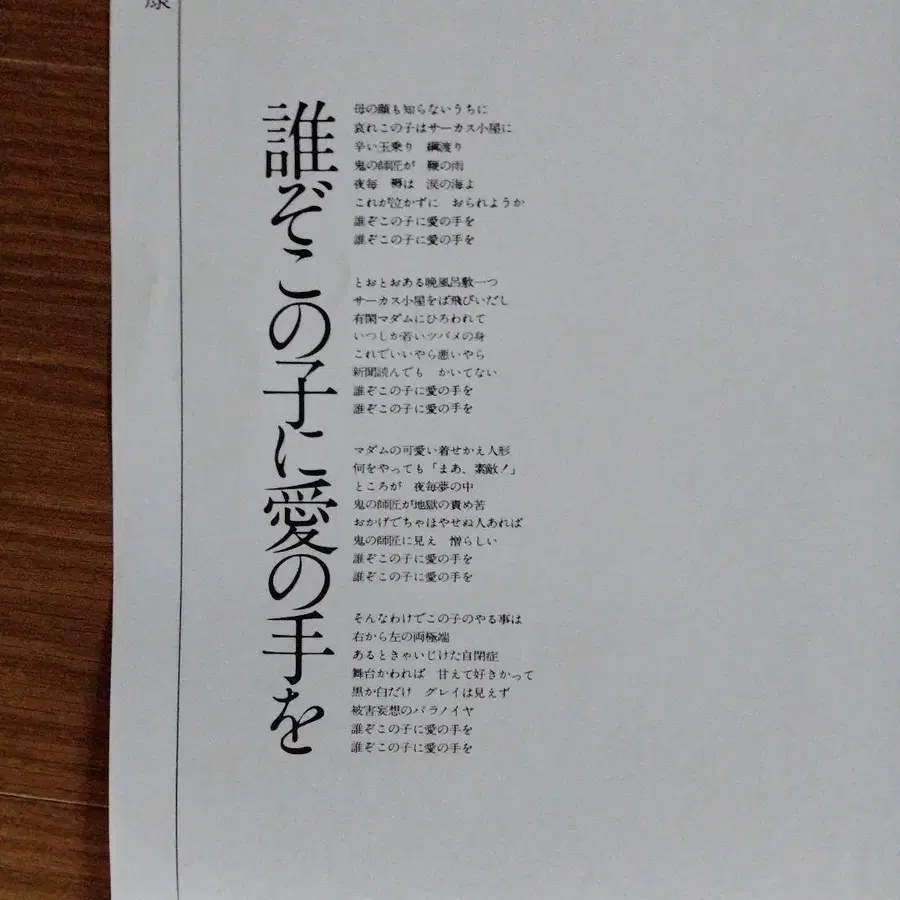 誰ぞこの子に愛の手を
母の顔も知らないうちに
哀れこの子はサーカス小屋に
辛い玉乗り　綱渡り
鬼の師匠が　鞭の雨
夜毎　褥は　涙の海よ
これが泣かずに　おられようか
誰ぞこの子に愛の手を
誰ぞこの子に愛の手を
とおとおある晩風呂敷一つ
サーカス小屋をば飛びいだし
有閑マダムにひろわれて
いつしか若いツバメの身
これでいいやら悪いやら
新聞読んでも　かいてない
誰ぞこの子に愛の手を
誰ぞこの子に愛の手を
マダムの可愛い着せかえ人形
何をやっても「まあ、素敵！」
ところが　夜毎夢の中
鬼の師匠が地獄の責め苦
おかげでちゃほやせぬ人あれば
鬼の師匠に見え　憎らしい
誰ぞこの子に愛の手を
誰ぞこの子に愛の手を
そんなわけでこの子のやる事は
右から左の両極端
あるときゃいじけた自閉症
舞台かわれば　甘えて好きかって
黒か白だけ　グレイは見えず
被害妄想のパラノイヤ
誰ぞこの子に愛の手を
誰ぞこの子に愛の手を